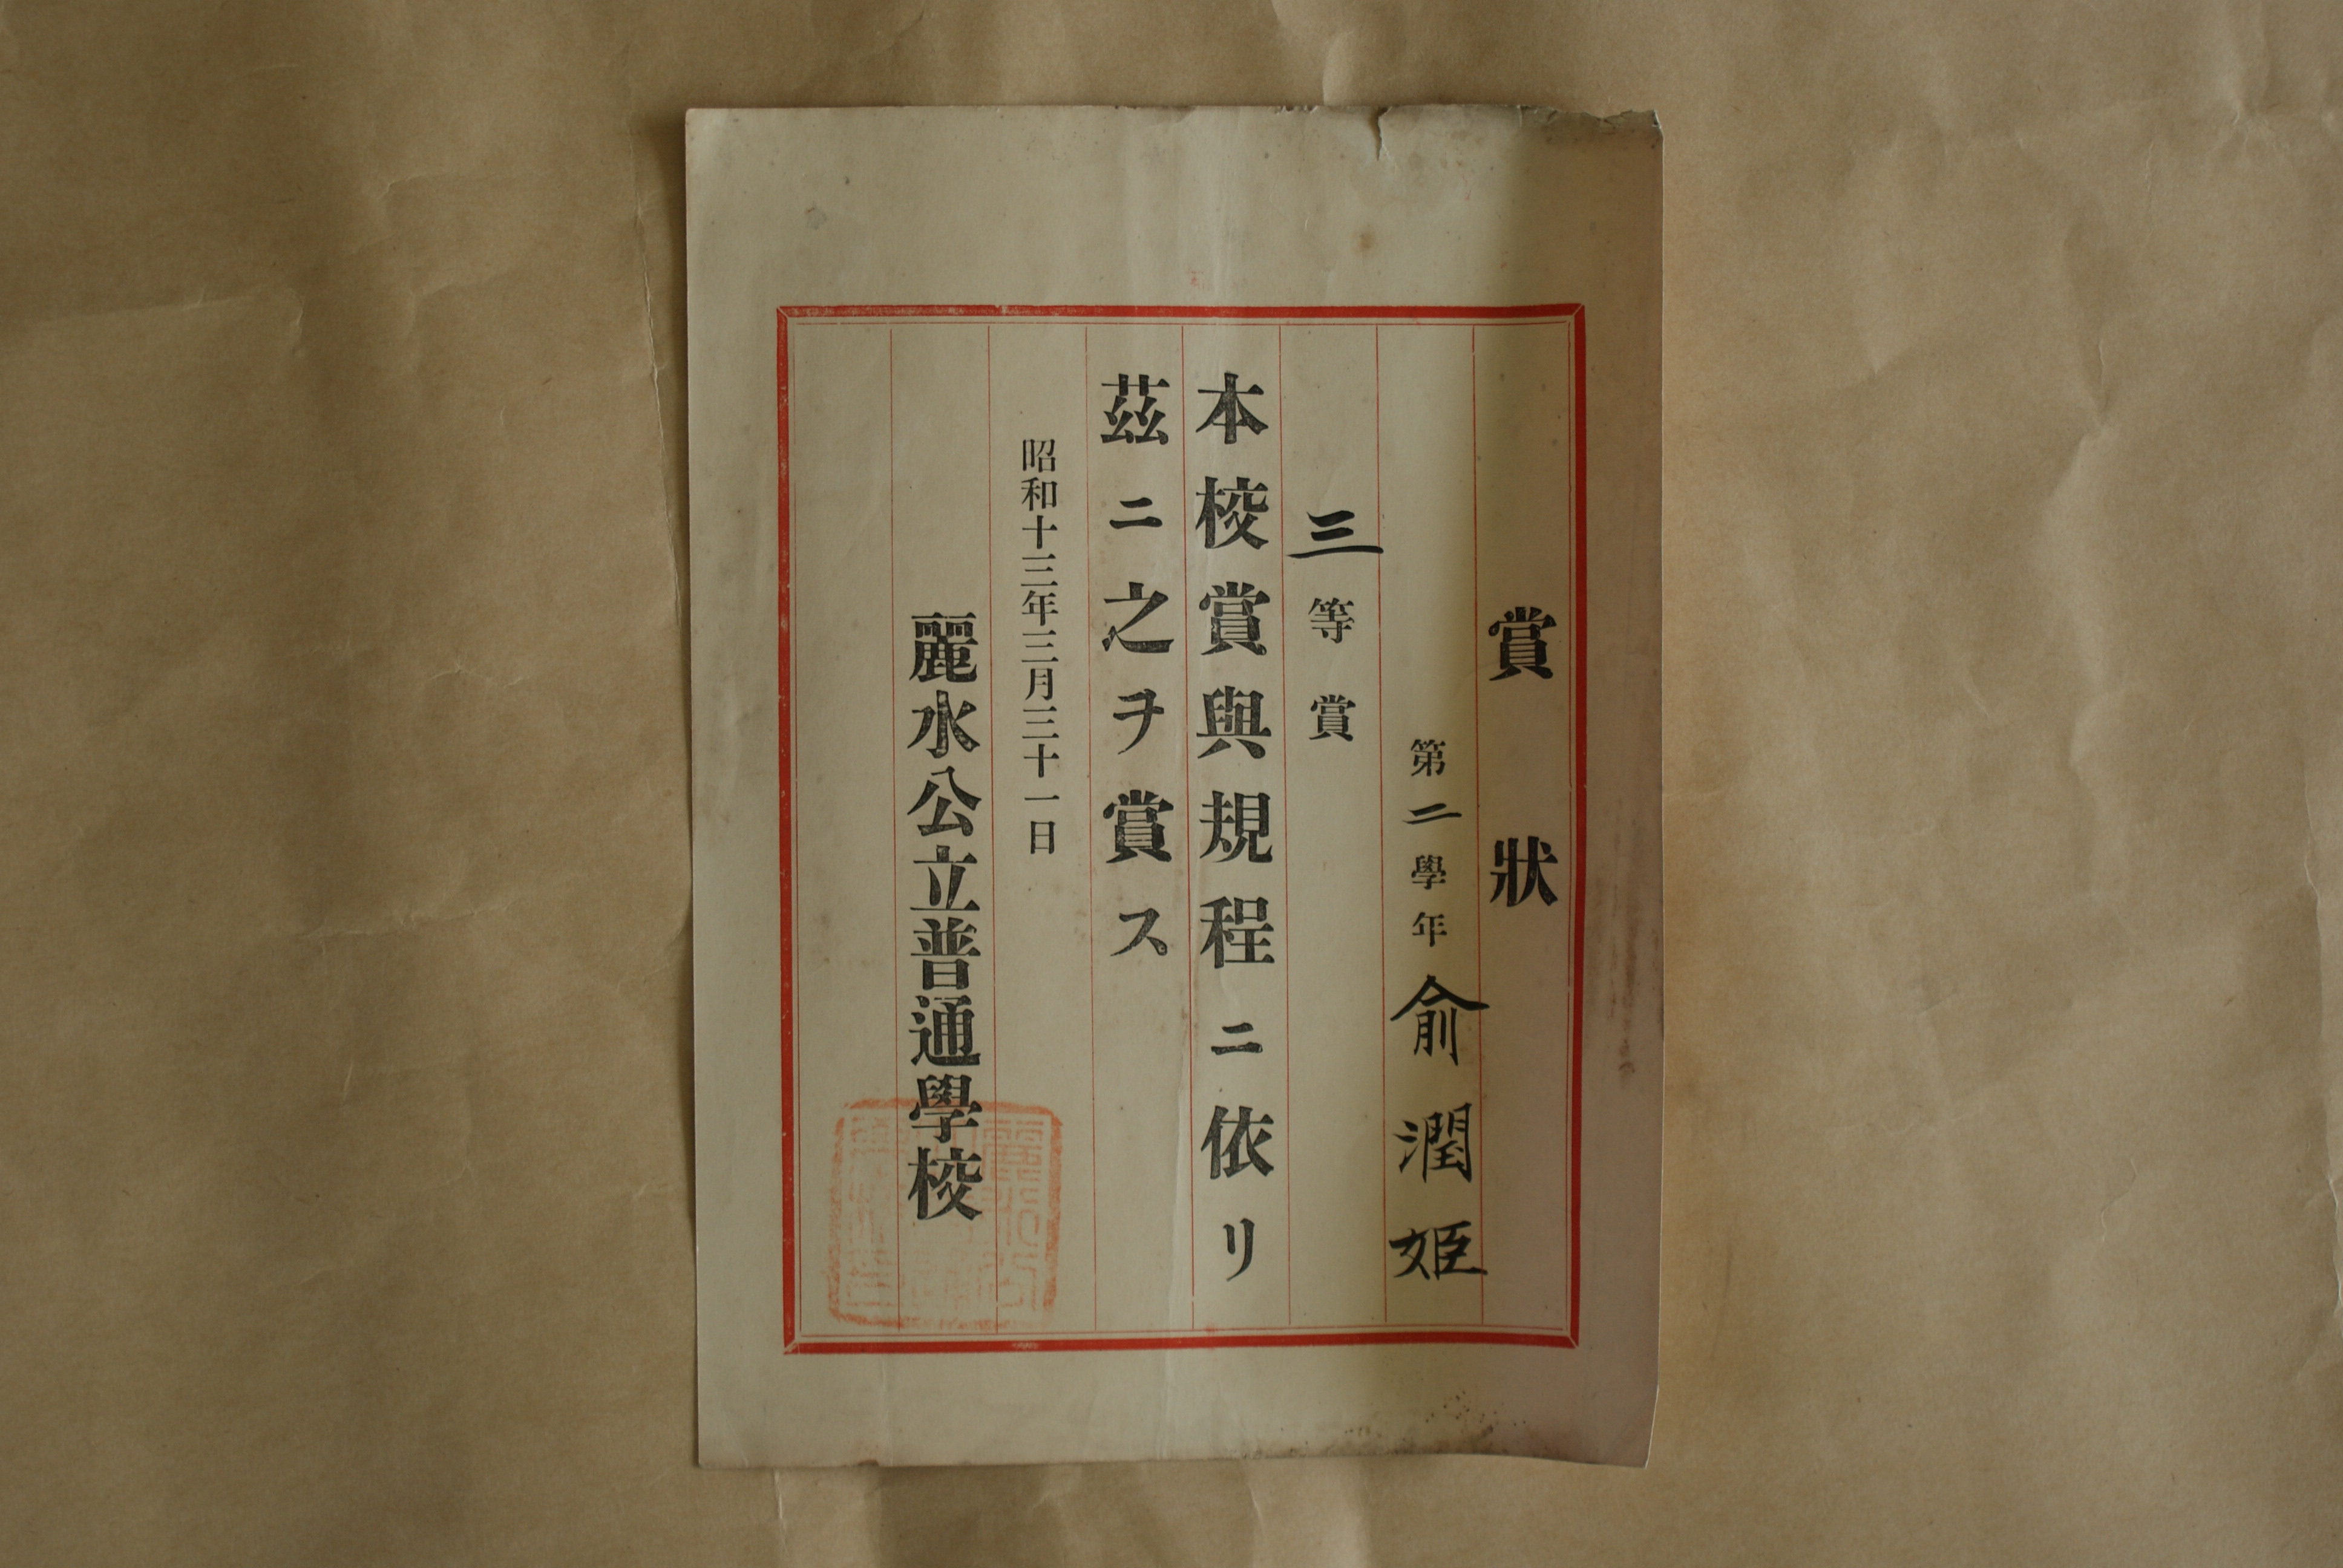 賞狀
第二學年 俞潤姬
三等賞
本校賞與規程ニ依リ
茲ニ之ヲ賞ス
昭和十三年三月三十一日
麗水公立普通學校